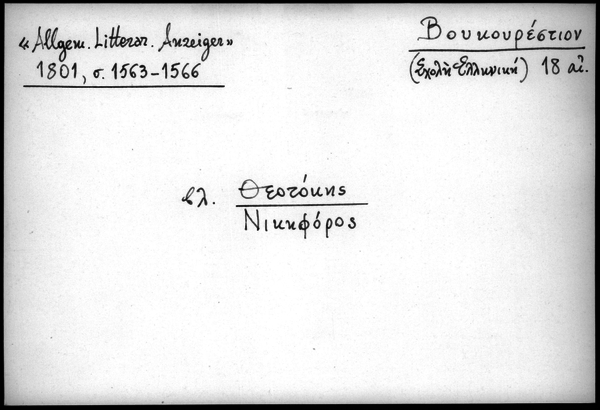 «Allgem. Litterar. Anzeiger»
1801, σ. 1563-1566
Βουκουρέστιον
(Σχολὴ Ἑλληνική) 18 αἰ.
βλ. Θεοτόκης
Νικηφόρος